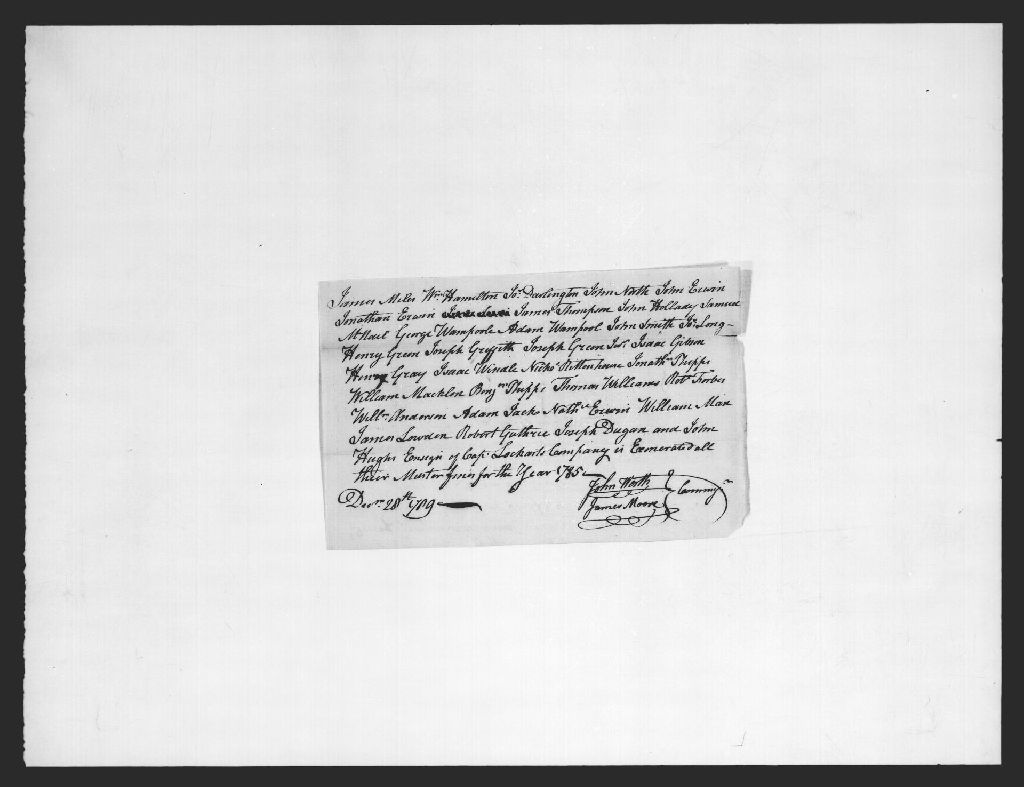 James Miles Wm Hamilton Jos. Darlington John North John Erwin
Jonathan Erwin James Thompson John Hollady Samuel
McNail George Wampole Adam Wampool John Smith Long
Henry Green Joseph Griffith Joseph Green Jur. Isaac Gibson
Henry Gray Isaac Windle Nichs Rittenhouse Jonathn Phipps
William Macklen Benjn Phipps Thomas Williams Robt Forbes
Willm Anderson Adam Jack Nathl Erwin William Man
James Lowden Robert Guthrie Joseph Dugan and John
Hughs Ensign of Capt. Lockarts Company is Exonerated all
their Muster fines for the Year 1785
John Worth
Decmr 28th 1789
James Moore